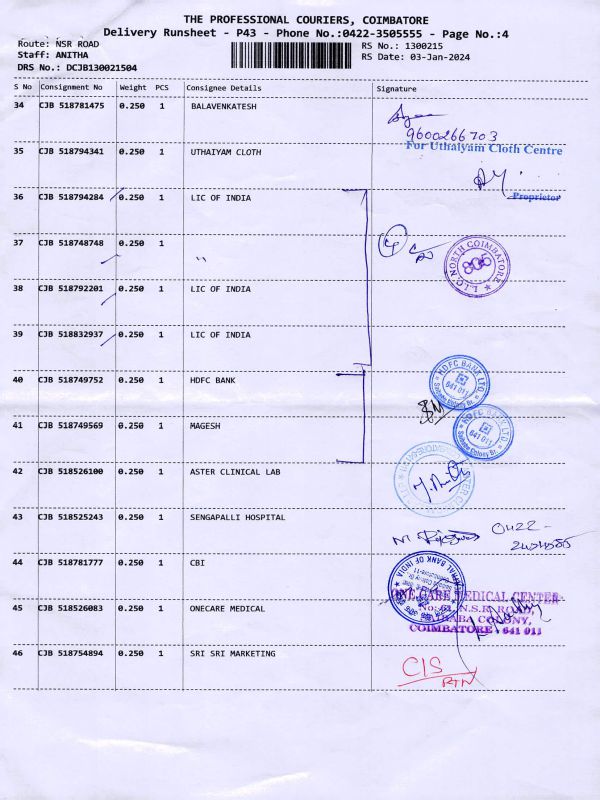 THE PROFESSIONAL COURIERS, COIMBATORE
Delivery Runsheet - P43 - Phone No.:0422-3505555 - Page No.:4
Route: NSR ROAD
Staff: ANITHA
DRS No.: DCJB130021504
RS No.: 1300215
RS Date: 03-Jan-2024
S No Consignment No Weight PCS Consignee Details Signature
34 CJB 518781475 0.250 1 BALAVENKATESH
9600266703
35 CJB 518794341 0.250 1 UTHAIYAM CLOTH
For Uthaiyam Cloth Centre
Proprietor
36 CJB 518794284 0.250 1 LIC OF INDIA
37 CJB 518748748 0.250 1 "
L.I.C. NORTH COIMBATORE
805
38 CJB 518792201 0.250 1 LIC OF INDIA
39 CJB 518832937 0.250 1 LIC OF INDIA
40 CJB 518749752 0.250 1 HDFC BANK
HDFC BANK LTD.
641 011
Saibaba Colony Br.
41 CJB 518749569 0.250 1 MAGESH
HDFC BANK LTD.
641 011
Saibaba Colony Br.
42 CJB 518526100 0.250 1 ASTER CLINICAL LAB
43 CJB 518525243 0.250 1 SENGAPALLI HOSPITAL
0422-
44 CJB 518781777 0.250 1 CBI
45 CJB 518526083 0.250 1 ONECARE MEDICAL
ONE CARE MEDICAL CENTER
N.S.R. ROAD,
COLONY,
COIMBATORE - 641 011
46 CJB 518754894 0.250 1 SRI SRI MARKETING
C/S
RTN